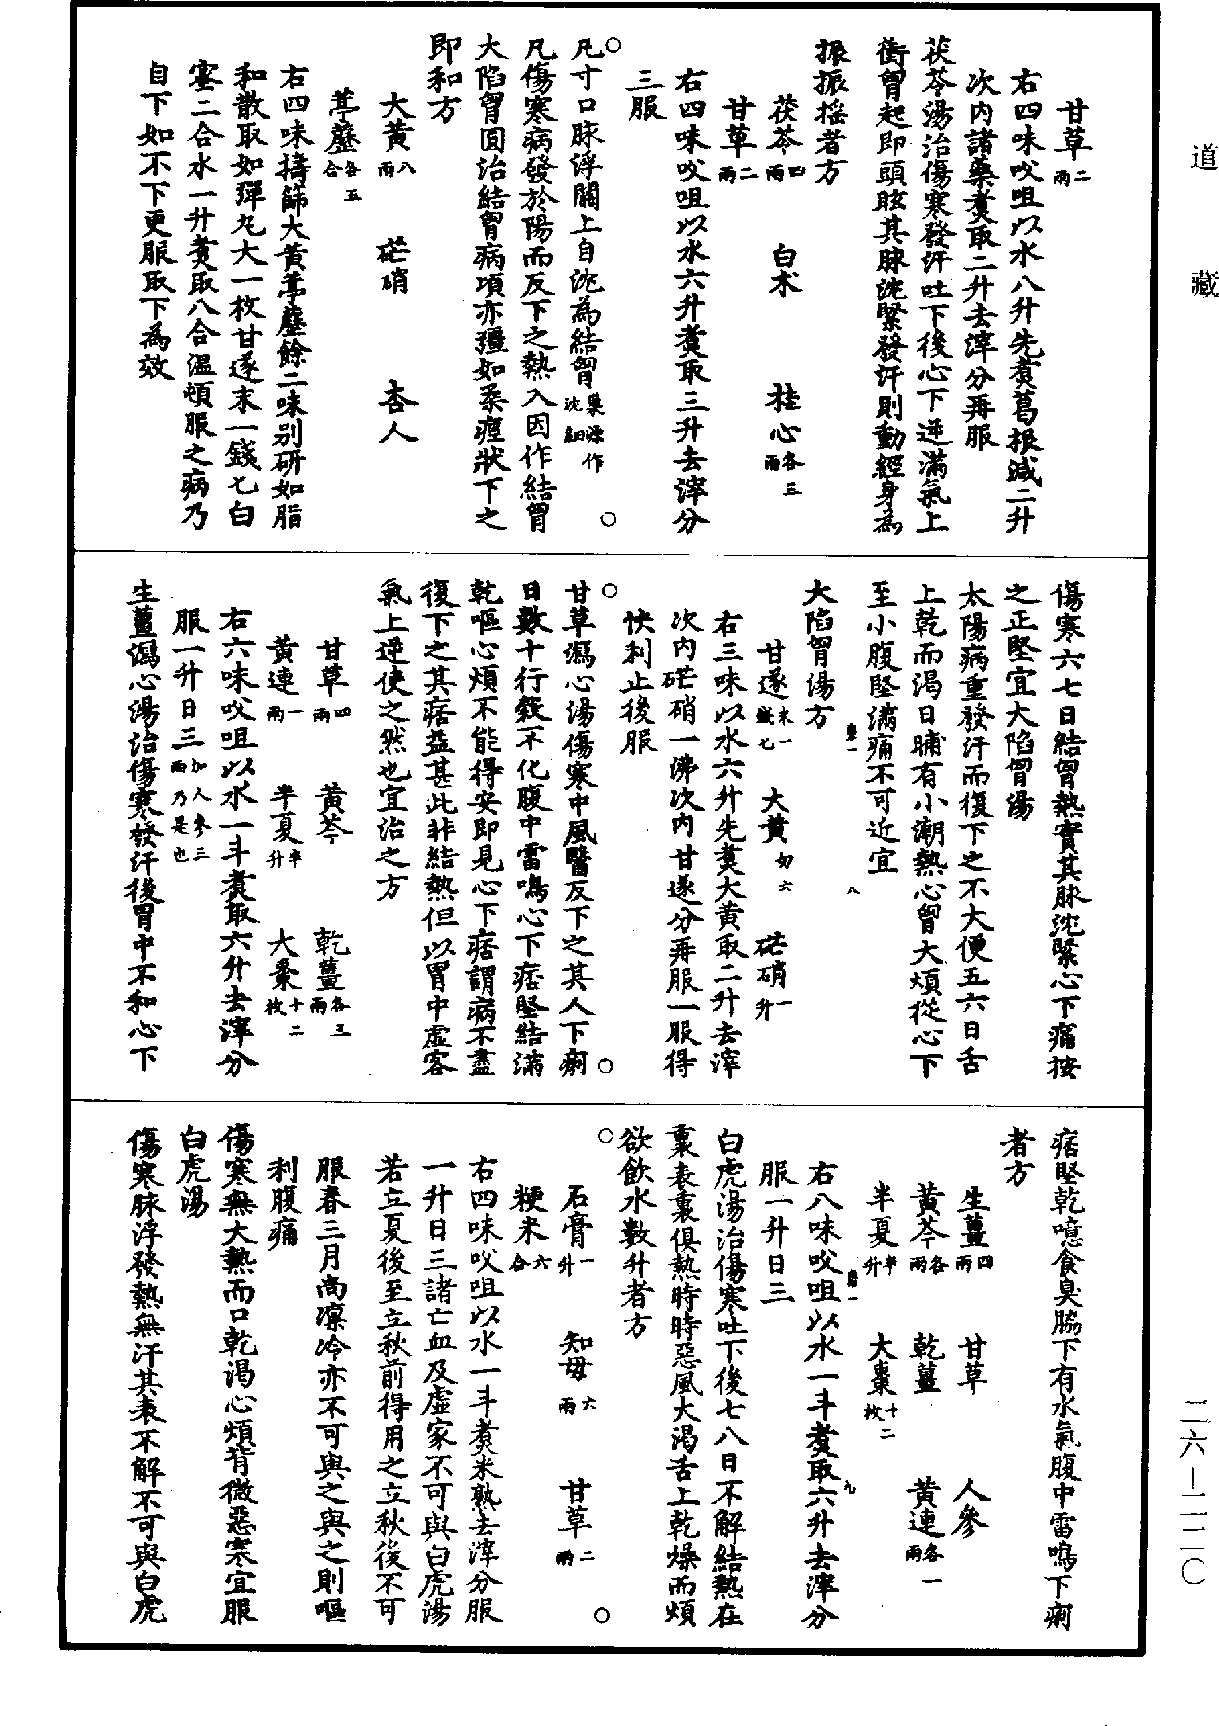 道藏
甘草二兩
右四味㕮咀以水八升先煮葛根減二升
次內諸藥煮取二升去滓分再服
茯苓湯治傷寒發汗吐下後心下逆滿氣上
衝胷起即頭眩其脉沈緊發汗則動經身為
振振摇者方
茯苓四兩 白术 桂心各三兩
甘草二兩
右四味㕮咀以水六升煮取三升去滓分
三服
○
凡寸口脉浮關上自沈為結胷巢源作沈細 ○
凡傷寒病發於陽而反下之熱入因作結胷
大陷胷圓治結胷病項亦彊如柔痙狀下之
即和方
大黃八兩 芒硝 杏人
葶藶各五合
右四味擣篩大黃葶藶餘二味別研如脂
和散取如彈丸大一枚甘遂末一錢匕白
蜜二合水一升煮取八合温頓服之病乃
自下如不下更服取下為效
傷寒六七日結胷熱實其脉沈緊心下痛按
之正堅宜大陷胷湯
太陽病重發汗而復下之不大便五六日舌
上乾而渴日晡有小潮熱心胷大煩從心下
至小腹堅滿痛不可近宜
八
大陷胷湯方
甘遂末一錢匕 大黃六兩 芒硝一升
右三味以水六升先煑大黃取二升去滓
次內芒硝一沸次內甘遂分再服一服得
快利止後服
○
甘草瀉心湯傷寒中風醫反下之其人下痢 ○
日數十行穀不化腹中雷鳴心下痞堅結滿
乾嘔心煩不能得安即見心下痞謂病不盡
復下之其痞益甚此非結熱但以胃中虛客
氣上逆使之然也宜治之方
甘草四兩 黃芩 乾薑各三兩
黃連一兩 半夏半升 大棗十二枚
右六味㕮咀以水一斗煮取六升去滓分
服一升日三加人參三兩乃是也
生薑瀉心湯治傷寒發汗後胃中不和心下
痞堅乾噫食臭脇下有水氣腹中雷鳴下痢
者方
生薑四兩 甘草 人參
黃芩各兩 乾薑 黃連各一兩
半夏半升 大棗十二枚
九
右八味㕮咀以水一斗煮取六升去滓分
服一升日三
白虎湯治傷寒吐下後七八日不解結熱在
裏表裏俱熱時時惡風大渴舌上乾燥而煩
欲飲水數升者方
○ ○
石膏一升 知母六兩 甘草二兩
粳米六合
右四味㕮咀以水一斗煮米熟去滓分服
一升日三諸亡血及虛家不可與白虎湯
若立夏後至立秋前得用之立秋後不可
服春三月尚凛冷亦不可與之與之則嘔
利腹痛
傷寒無大熱而口乾渴心煩背微惡寒宜服
白虎湯
傷寒脉浮發熱無汗其表不解不可與白虎
二六—二二〇